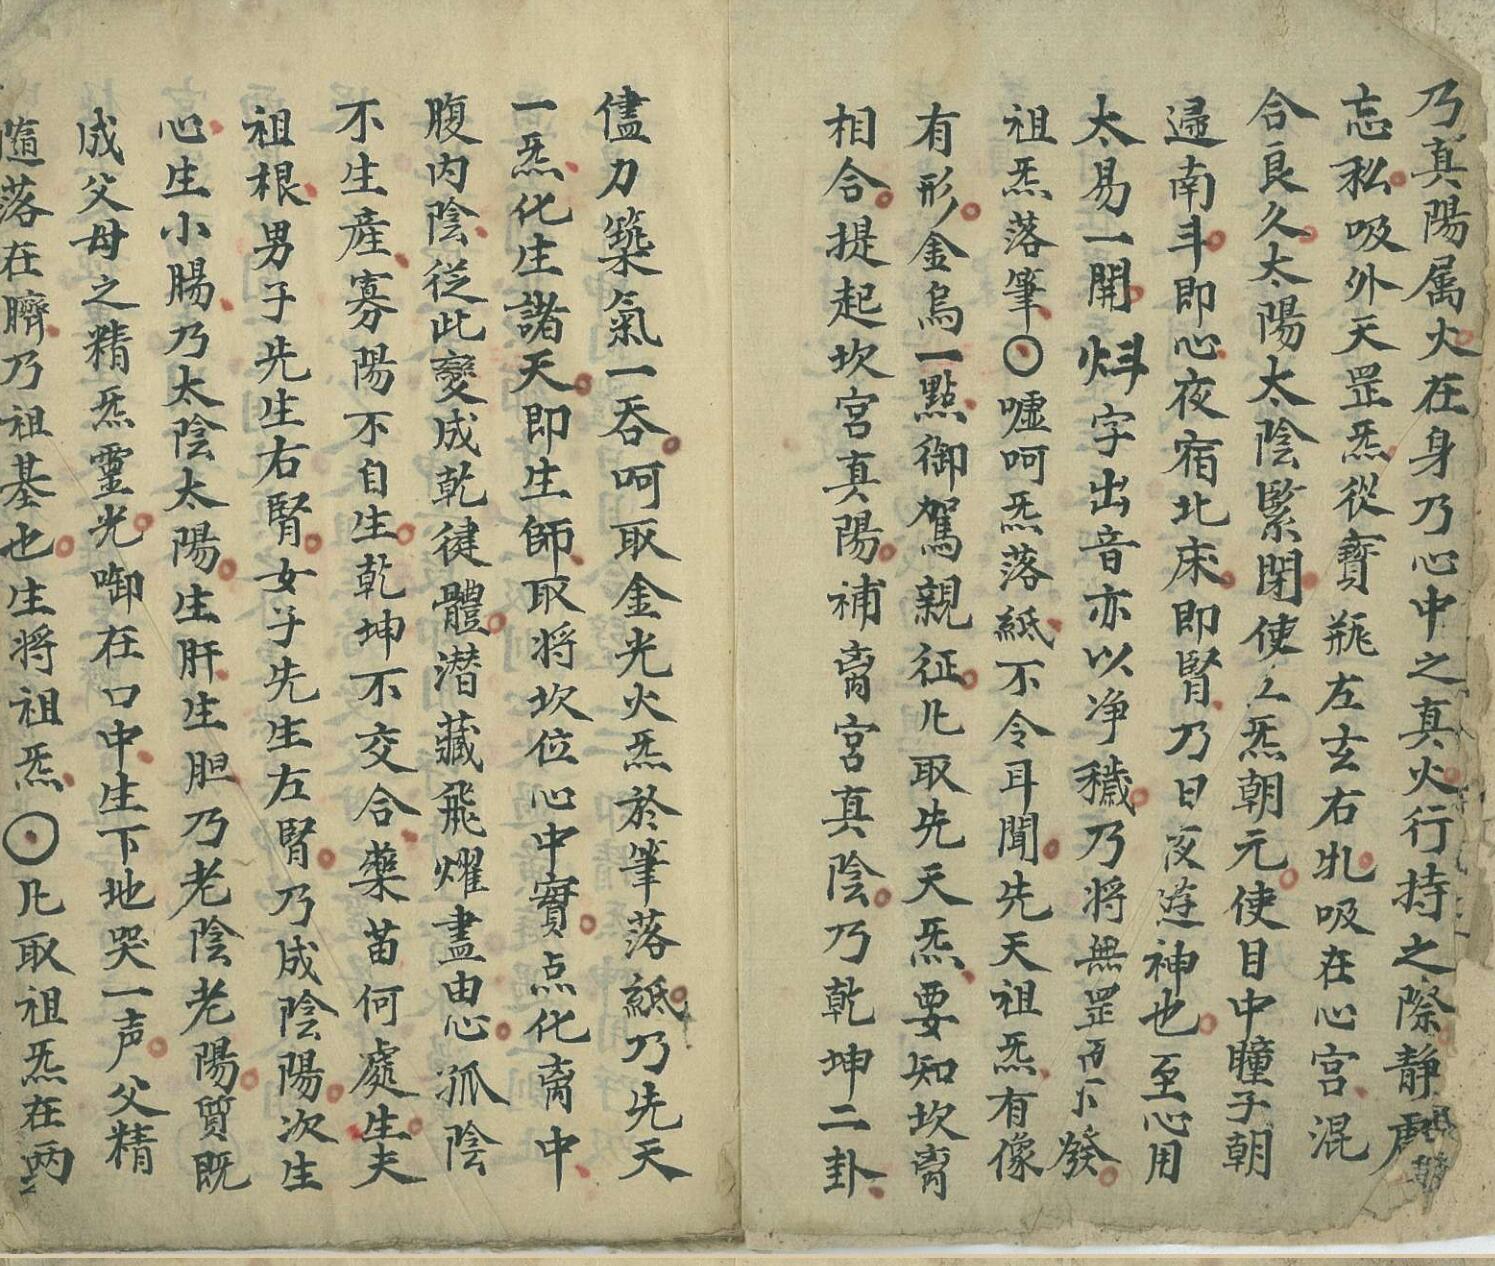 乃真陽属火在身乃心中之真火行持之際静
忘私吸外天罡炁從寳瓶左玄右吸在心宫混
合良久太陽太陰緊閉使炁朝元使目中瞳子朝
南斗即心夜宿北床即腎乃日夜遊神也至心用
太易一開字出音亦以净穢乃將無罡發
祖炁落筆〇嘘呵炁落紙不令耳聞先天祖炁有像
有形金烏一點御駕親征凡取先天炁要知坎离
相合提起坎宫真陽補离宫真陰乃乾坤二卦
儘力築氣一吞呵取金光火炁於筆落紙乃先天
一炁化生諸天即生師取将坎位心中實点化离中
腹内陰從此變成乾徤體潜藏飛耀盡由心孤陰
不生産寡陽不自生乾坤不交合藥苗何處生夫
祖根男子先生右腎女子先生左腎乃成陰陽次生
心生小腸乃太陰太陽生肝生胆乃老陰老陽質既
成父母之精炁靈光啣在口中生下地哭一声父精
隨落在臍乃祖基也生将祖炁〇凡取祖炁在两